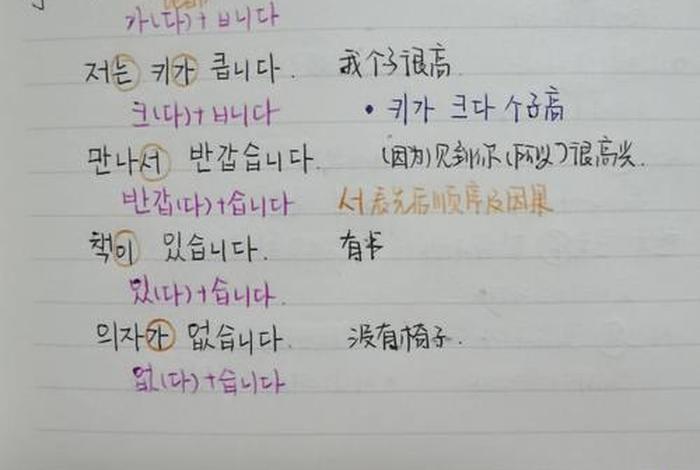 가(다)+ㅂ니다
저는 키가 큽니다. 我个子很高
크(다)+ㅂ니다 • 키가 크다 个子高
만나서 반갑습니다. (因为)见到你(所以)很高兴.
반갑(다)+습니다 서表先后顺序及因果
책이 있습니다. 有书
있(다)+습니다.
의자가 없습니다. 没有椅子.
없(다)+습니다